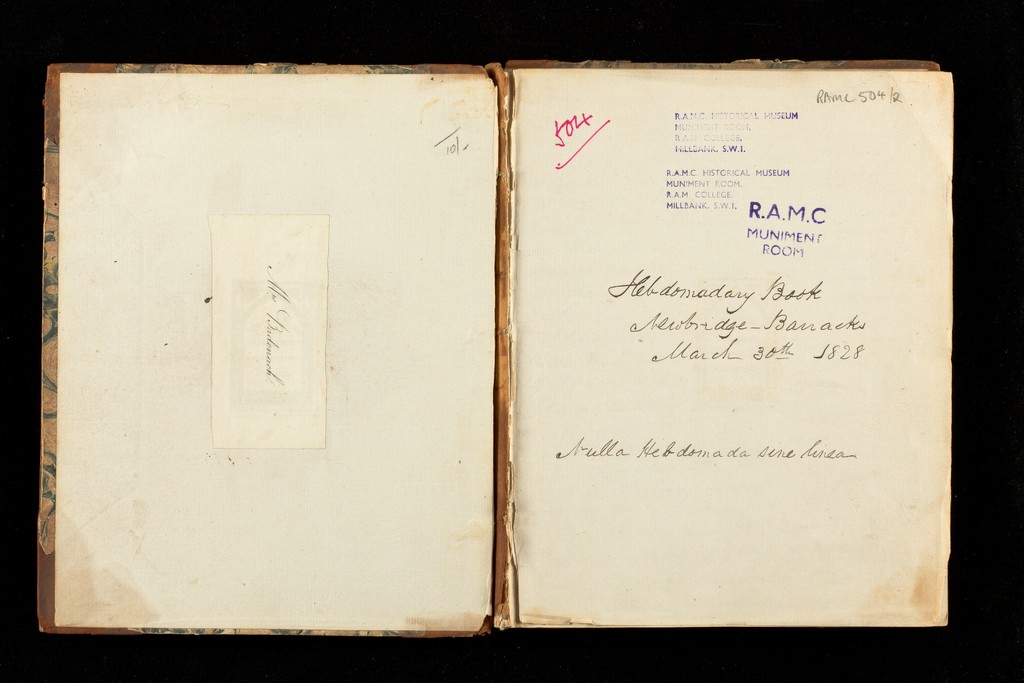 10/-
Mr. Badenach.
RAMC 504/2
504
R.A.M.C. HISTORICAL MUSEUM
MUNIMENT ROOM,
R.A.M. COLLEGE,
MILLBANK, S.W.1.
R.A.M.C. HISTORICAL MUSEUM
MUNIMENT ROOM,
R.A.M. COLLEGE,
MILLBANK, S.W.1.
R.A.M.C
MUNIMENT
ROOM
Hebdomadary Book
Newbridge - Barracks
March 30th 1828
Nulla Hebdomada sine linea